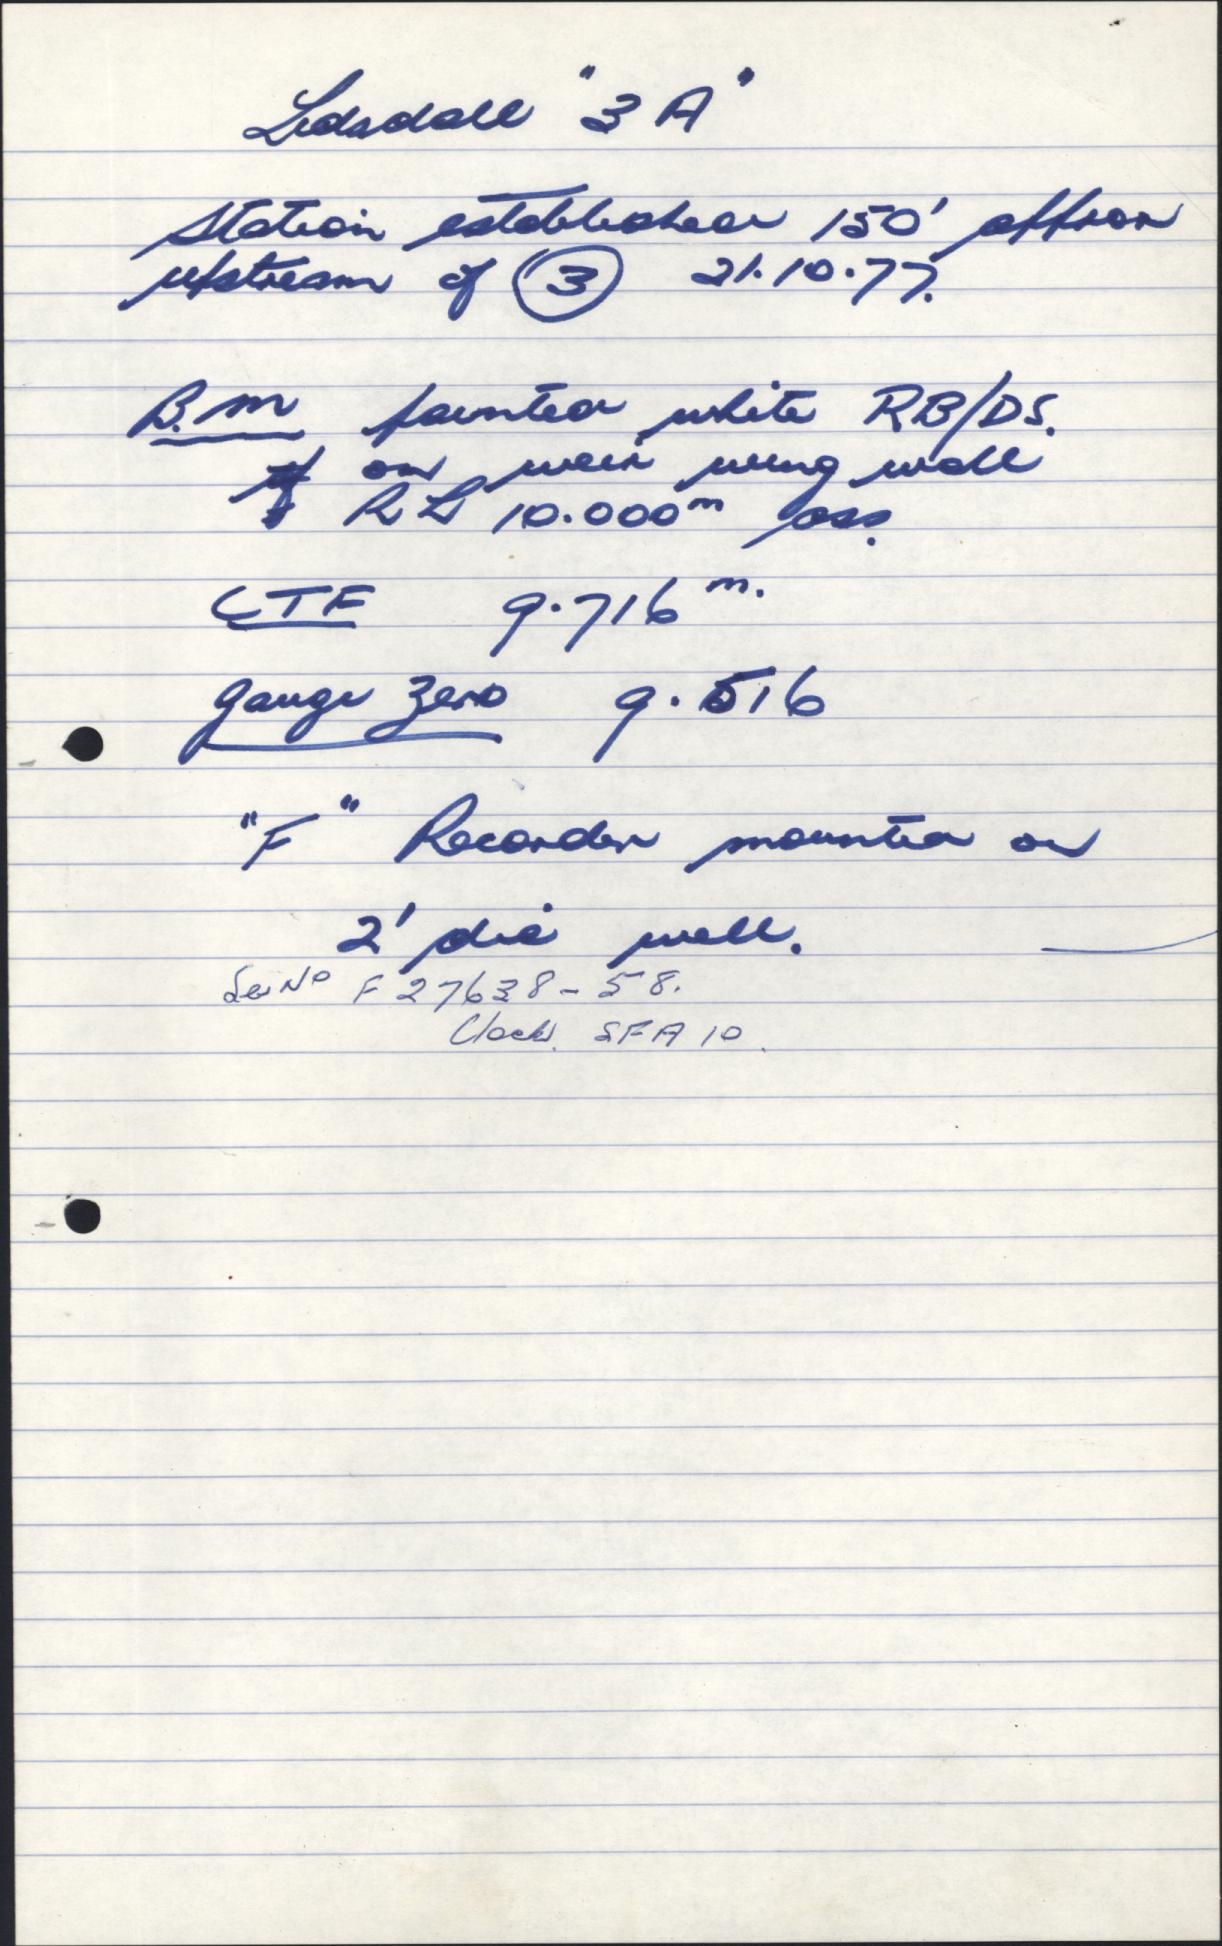 Lidsdall "3 A"
Station established 150' approx
upstream of 3 21.10.77.
B.M painted white RB/DS.
on weir wing wall
RL 10.000m ass.
CTF 9.716 m.
Gauge Zero 9.516
"F" Recorder mounted on
2' dia well.
Ser No F 27638-58.
Clock SFA 10.